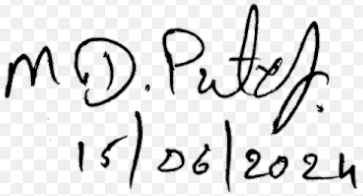 M D. Patel.
15/06/2024